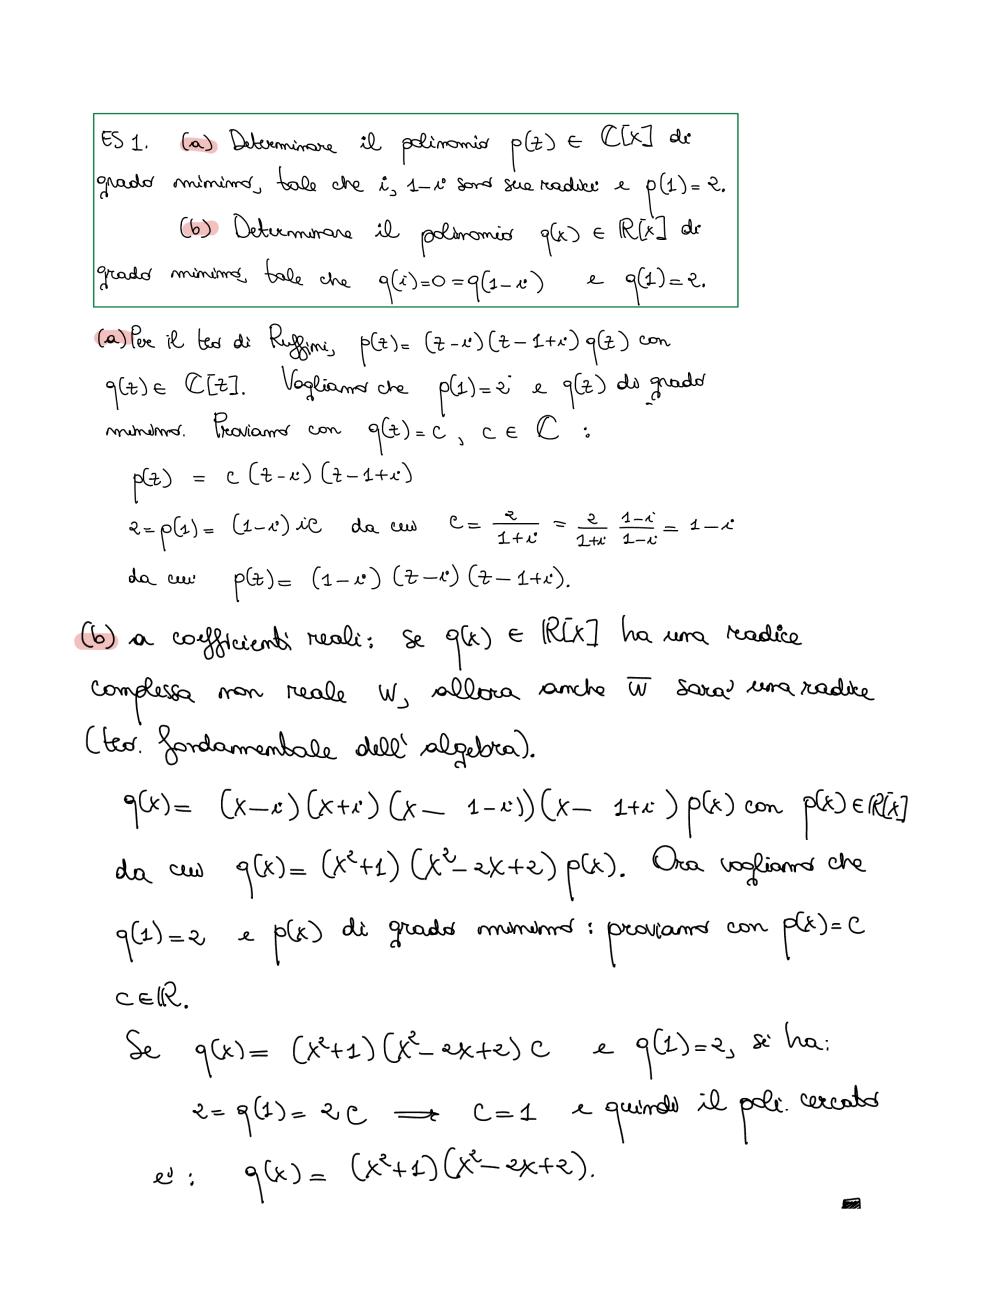 ES 1. (a) Determinare il polinomio p(z) ∈ ℂ[x] di
grado minimo, tale che i, 1-i sono sue radici e p(1) = 2.
(b) Determinare il polinomio q(x) ∈ ℝ[x] di
grado minimo, tale che q(i)=0=q(1-i) e q(1)=2.
(a) Per il teo di Ruffini, p(z) = (z-i)(z-1+i) q(z) con
q(z) ∈ ℂ[z]. Vogliamo che p(1)=2 e q(z) di grado
minimo. Proviamo con q(z)=c, c ∈ ℂ :
p(z) = c (z-i) (z-1+i)
2=p(1)= (1-i) ic da cui c = 2/(1+i) = 2/(1+i) (1-i)/(1-i) = 1-i
da cui p(z) = (1-i) (z-i) (z-1+i).
(b) a coefficienti reali: se q(x) ∈ ℝ[x] ha una radice
complessa non reale w, allora anche w̅ sara' una radice
(teo. fondamentale dell' algebra).
q(x) = (x-i)(x+i)(x- 1-i))(x- 1+i ) p(x) con p(x) ∈ ℝ[x]
da cui q(x) = (x²+1) (x²-2x+2) p(x). Ora vogliamo che
q(1)=2 e p(x) di grado minimo : proviamo con p(x)=c
c∈ℝ.
Se q(x) = (x²+1)(x²-2x+2) c e q(1)=2, si ha:
2=q(1)= 2c ⟹ c=1 e quindi il poli. cercato
e' : q(x) = (x²+1)(x²-2x+2).